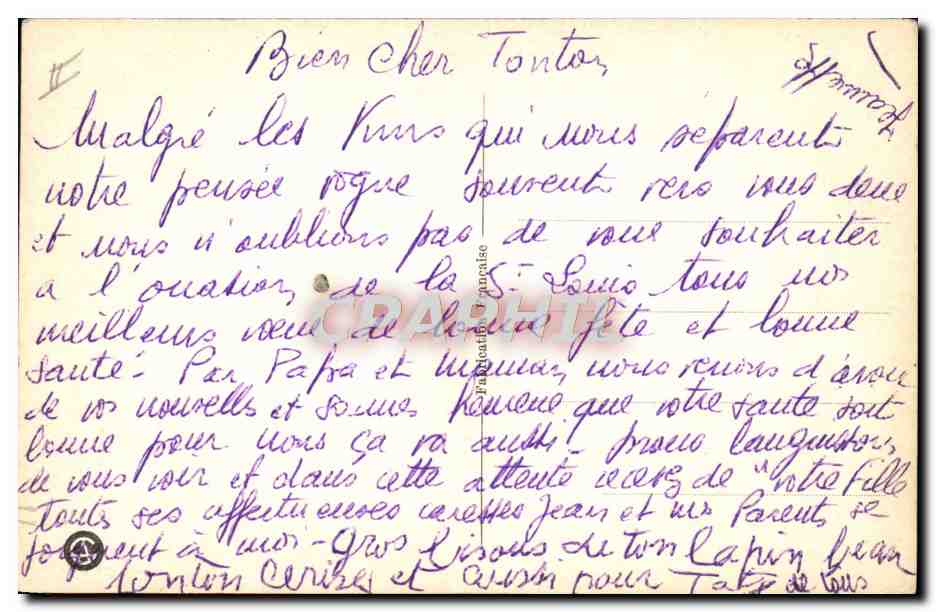 Bien cher Tonton
Malgré les Kms qui nous séparent
notre pensée vogue souvent vers vous deux
et nous n'oublions pas de vous souhaiter
a l'occasion de la St Louis tous nos
meilleurs voeux de bonne fête et bonne
santé. Par Papa et Maman nous venons d'avoir
de vos nouvelles et sommes heureux que votre santé soit
bonne pour nous ça va aussi - nous languissons
de vous voir et dans cette attente recevez de "votre fille
toutes ses affectueuses caresses Jean et mes Parents se
joignent à moi - Gros bisous de ton lapin beau
tonton cerise et aussi pour Taty de tous
Fabrication Française
CARTHAPHILA
II